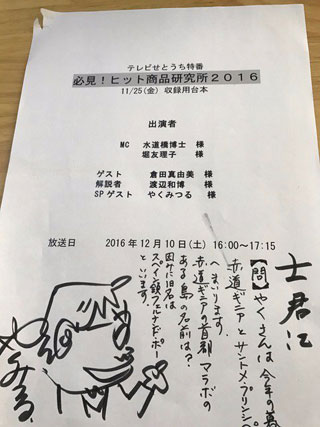 テレビせとうち特番
必見！ヒット商品研究所２０１６
11/25(金) 収録用台本
出演者
MC 水道橋博士 様
堀友理子 様
ゲスト 倉田真由美 様
解説者 渡辺和博 様
SPゲスト やくみつる 様
放送日 2016年12月10日(土) 16:00～17:15
士君江
【問】やくさんは今年の暮
赤道ギニアとサントメ・プリンシペ
へまいります。
赤道ギニアの首都マラボの
ある島の名前は？
因みに旧名は
スペイン領フェルナンド・ポー
といいます。
やくみつる